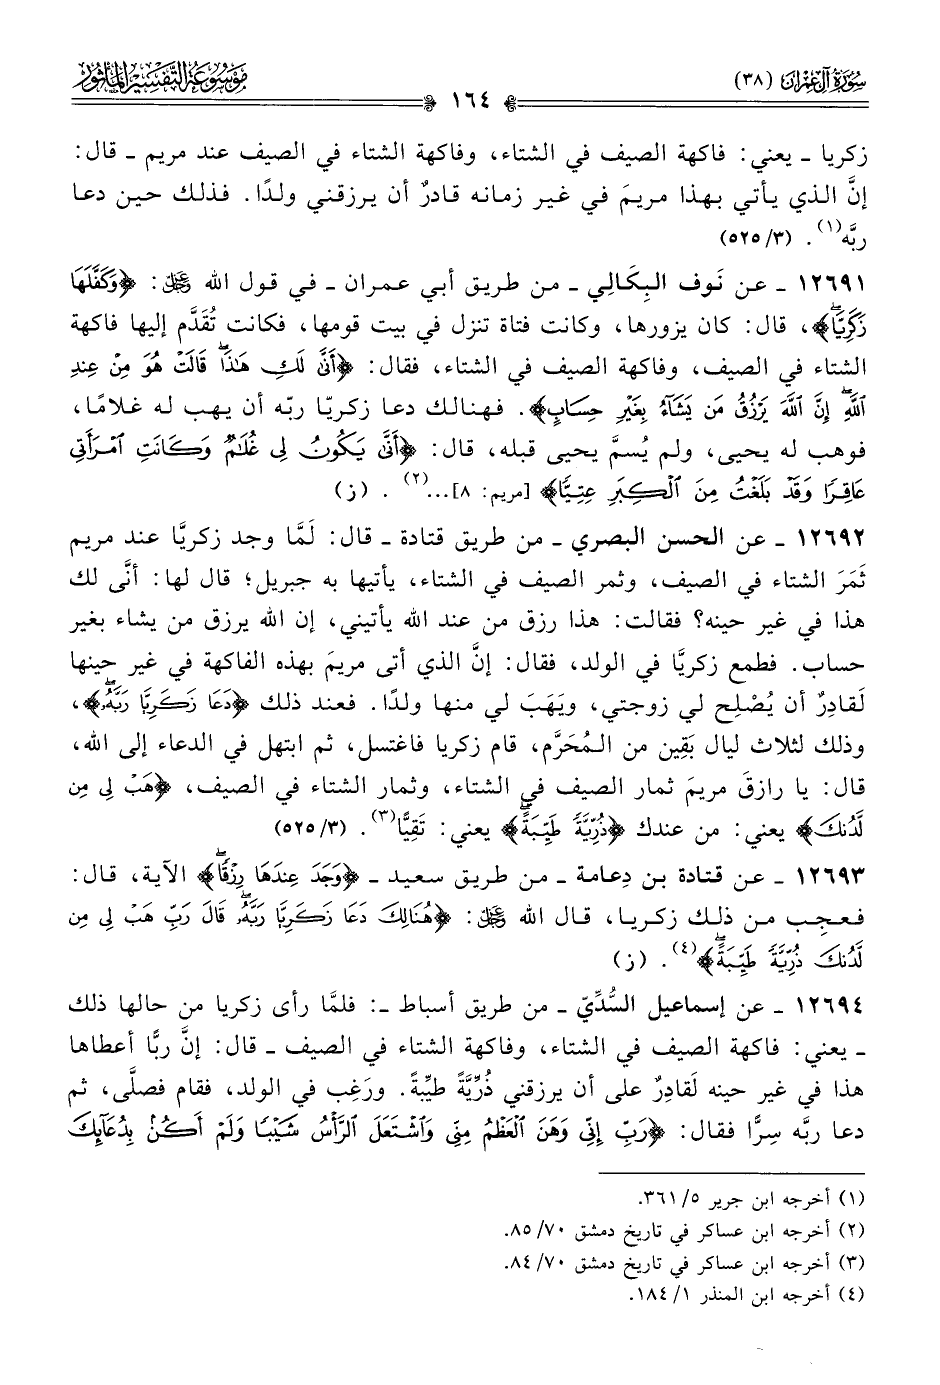 سُورَةُ آلِ عِمْرَان (٣٨)
مَوْسُوعَةُ التَّفْسِيرِ المَأْثُور
١٦٤
زكريا ـ يعني: فاكهة الصيف في الشتاء، وفاكهة الشتاء في الصيف عند مريم ـ قال:
إنَّ الذي يأتي بهذا مريمَ في غير زمانه قادرٌ أن يرزقني ولدًا. فذلك حين دعا
ربَّه(١). (٣/ ٥٢٥)
١٢٦٩١ ـ عن نَوف البِكَالِي ـ من طريق أبي عمران ـ في قول الله ﷿: ﴿وَكَفَّلَهَا
زَكَرِيَّاۖ﴾، قال: كان يزورها، وكانت فتاة تنزل في بيت قومها، فكانت تُقَدَّم إليها فاكهة
الشتاء في الصيف، وفاكهة الصيف في الشتاء، فقال: ﴿أَنَّىٰ لَكِ هَٰذَاۖ قَالَتْ هُوَ مِنْ عِندِ
ٱللَّهِۖ إِنَّ ٱللَّهَ يَرْزُقُ مَن يَشَآءُ بِغَيْرِ حِسَابٍ﴾. فهنالك دعا زكريّا ربّه أن يهب له غلامًا،
فوهب له يحيى، ولم يُسمَّ يحيى قبله، قال: ﴿أَنَّىٰ يَكُونُ لِى غُلَٰمٌ وَكَانَتِ ٱمْرَأَتِى
عَاقِرًا وَقَدْ بَلَغْتُ مِنَ ٱلْكِبَرِ عِتِيًّا﴾ [مريم: ٨]...(٢). (ز)
١٢٦٩٢ ـ عن الحسن البصري ـ من طريق قتادة ـ قال: لَمَّا وجد زكريَّا عند مريم
ثَمَرَ الشتاء في الصيف، وثمر الصيف في الشتاء، يأتيها به جبريل؛ قال لها: أنَّى لك
هذا في غير حينه؟ فقالت: هذا رزق من عند الله يأتيني، إن الله يرزق من يشاء بغير
حساب. فطمع زكريَّا في الولد، فقال: إنَّ الذي أتى مريمَ بهذه الفاكهة في غير حينها
لَقادِرٌ أن يُصْلِح لي زوجتي، ويَهَبَ لي منها ولدًا. فعند ذلك ﴿دَعَا زَكَرِيَّا رَبَّهُۥۖ﴾،
وذلك لثلاث ليال بَقِين من المُحَرَّم، قام زكريا فاغتسل، ثم ابتهل في الدعاء إلى الله،
قال: يا رازقَ مريمَ ثمار الصيف في الشتاء، وثمار الشتاء في الصيف، ﴿هَبْ لِى مِن
لَّدُنكَ﴾ يعني: من عندك ﴿ذُرِّيَّةً طَيِّبَةًۖ﴾ يعني: تَقِيًّا(٣). (٣/ ٥٢٥)
١٢٦٩٣ ـ عن قتادة بن دِعامة ـ من طريق سعيد ـ ﴿وَجَدَ عِندَهَا رِزْقًاۖ﴾ الآية، قال:
فعجِب من ذلك زكريا، قال الله ﷿: ﴿هُنَالِكَ دَعَا زَكَرِيَّا رَبَّهُۥۖ قَالَ رَبِّ هَبْ لِى مِن
لَّدُنكَ ذُرِّيَّةً طَيِّبَةًۖ﴾(٤). (ز)
١٢٦٩٤ ـ عن إسماعيل السُّدِّيّ ـ من طريق أسباط ـ: فلمَّا رأى زكريا من حالها ذلك
ـ يعني: فاكهة الصيف في الشتاء، وفاكهة الشتاء في الصيف ـ قال: إنَّ ربًّا أعطاها
هذا في غير حينه لَقادِرٌ على أن يرزقني ذُرِّيَّةً طيِّبةً. ورَغِب في الولد، فقام فصلَّى، ثم
دعا ربَّه سِرًّا فقال: ﴿رَبِّ إِنِّى وَهَنَ ٱلْعَظْمُ مِنِّى وَٱشْتَعَلَ ٱلرَّأْسُ شَيْبًا وَلَمْ أَكُنۢ بِدُعَآئِكَ
(١) أخرجه ابن جرير ٥/ ٣٦١.
(٢) أخرجه ابن عساكر في تاريخ دمشق ٧٠/ ٨٥.
(٣) أخرجه ابن عساكر في تاريخ دمشق ٧٠/ ٨٤.
(٤) أخرجه ابن المنذر ١/ ١٨٤.